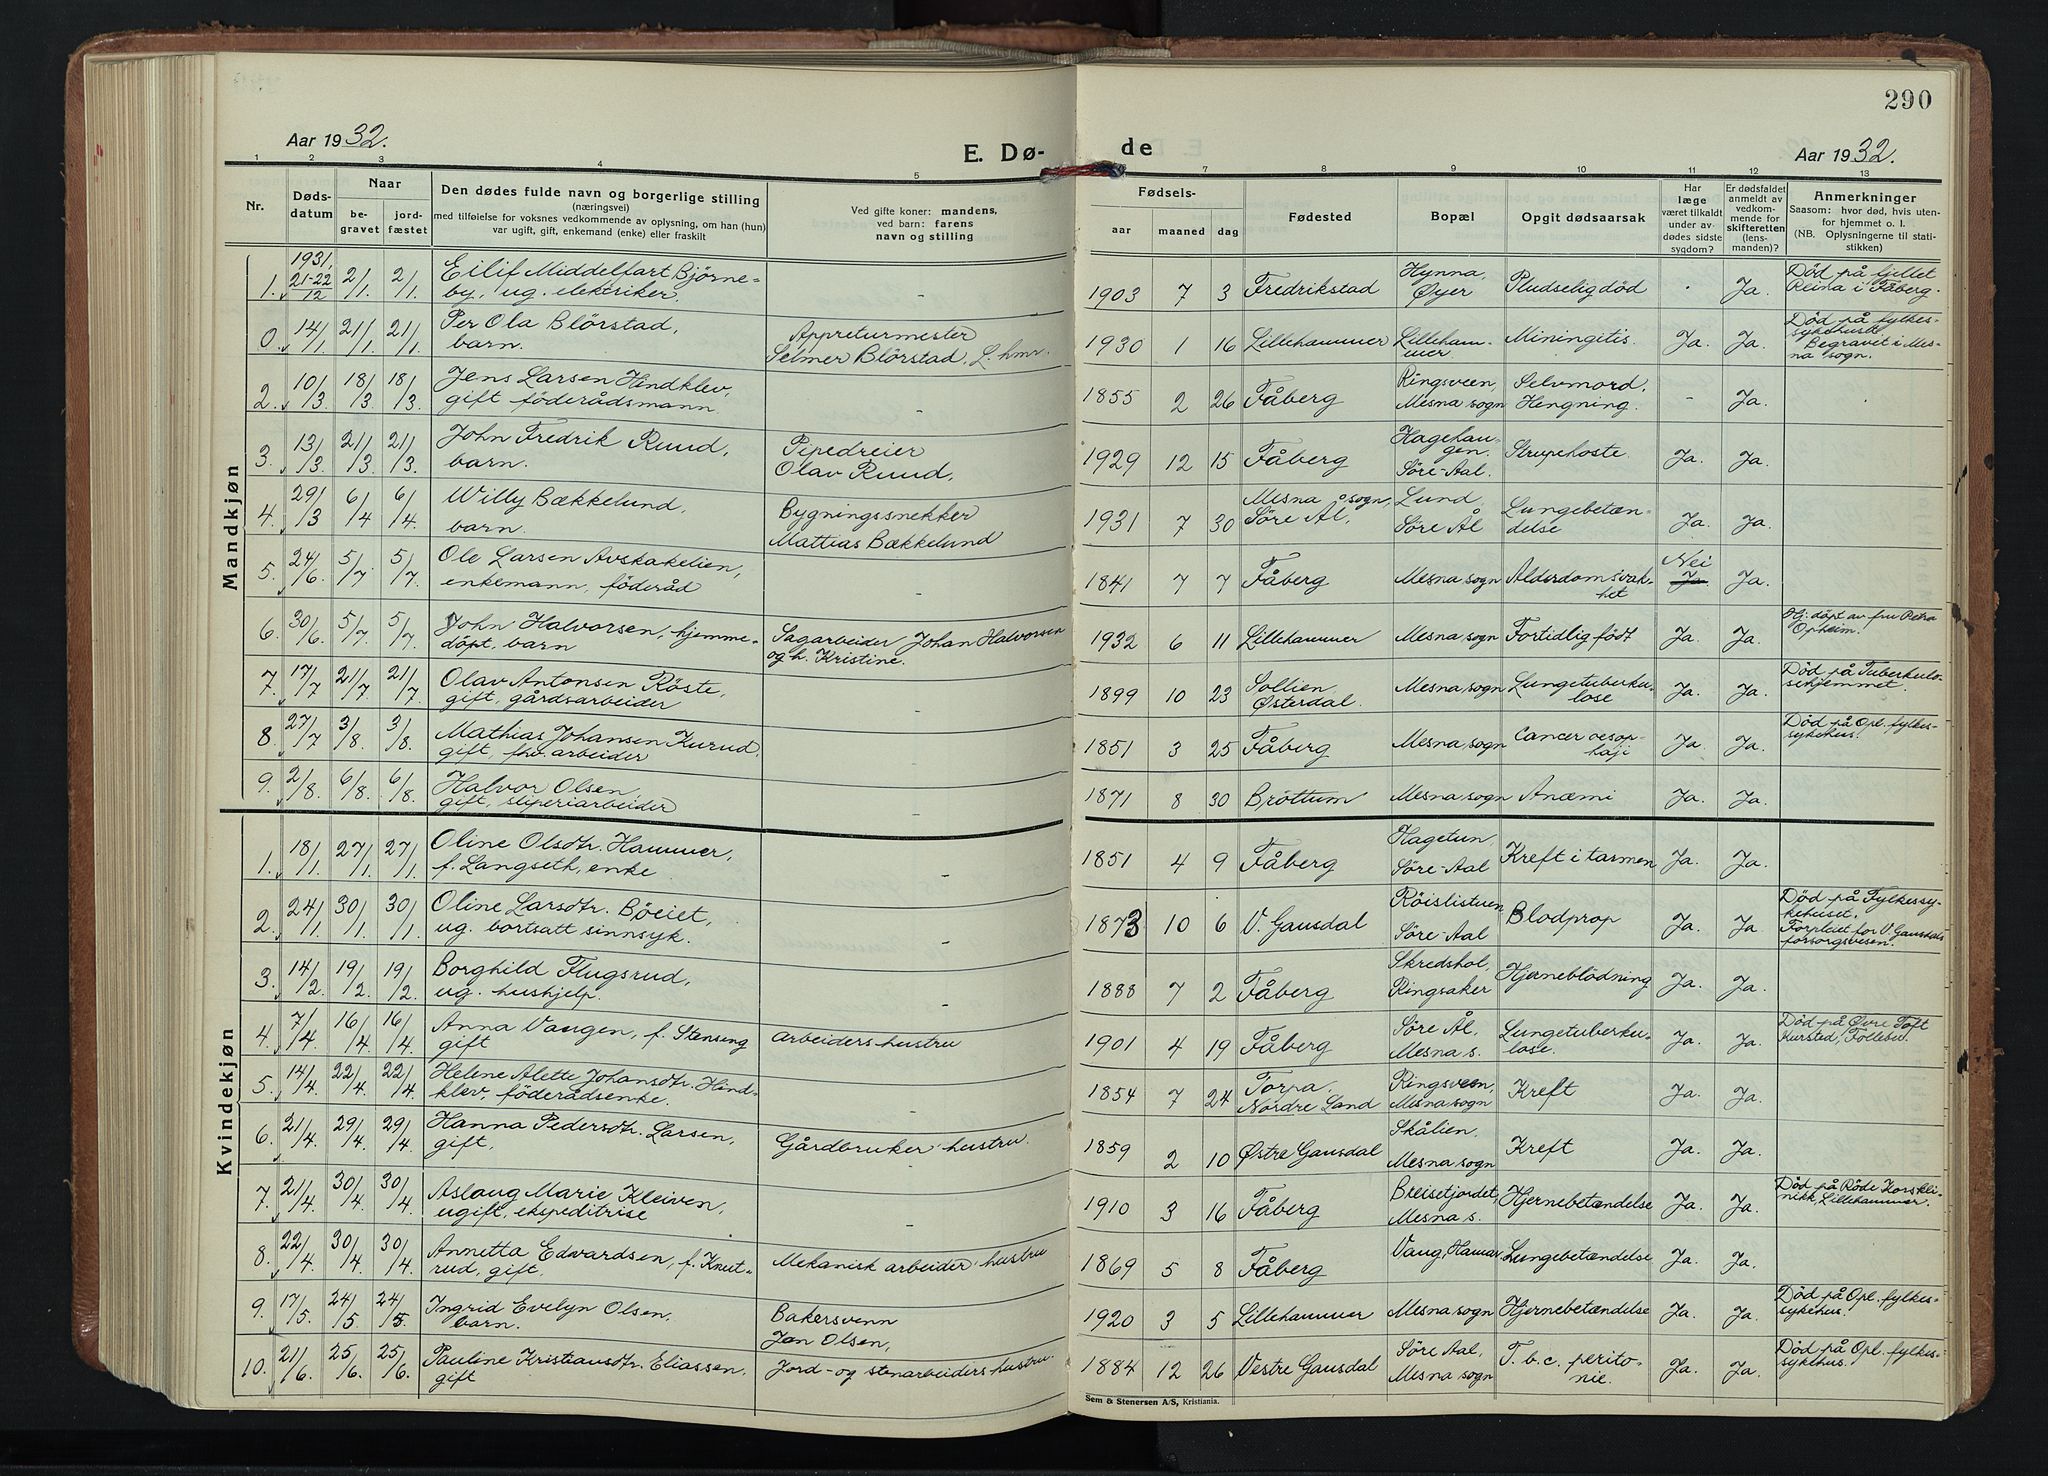 290
Aar 1932.
E. Dø-
de
Aar 1932.
1 2 3 4 5 6 7 8 9 10 11 12 13
Nr.
Døds-
datum
Naar
be-
gravet
jord-
fæstet
Den dødes fulde navn og borgerlige stilling
(næringsvei)
med tilføielse for voksnes vedkommende av oplysning, om han (hun)
var ugift, gift, enkemand (enke) eller fraskilt
Ved gifte koner: mandens,
ved barn: farens
navn og stilling
Fødsels-
aar
maaned
dag
Fødested
Bopæl
Opgit dødsaarsak
Har
læge
været tilkaldt
under av-
dødes sidste
sygdom?
Er dødsfaldet
anmeldt av
vedkom-
mende for
skifteretten
(lens-
manden)?
Anmerkninger
Saasom: hvor død, hvis uten-
for hjemmet o. l.
(NB. Oplysningerne til stati-
stikken)
Mandkjøn
1. 1931. 21-22/12 2/1. 2/1. Eilif Middelfart Bjørne-
by, ug. elektriker. - 1903 7 3 Fredrikstad Hynna, Øyer Pludselig død - Ja. Død på fjellet
Reina i Fåberg.
0. 14/1. 21/1. 21/1. Per Ola Blörstad,
barn. Appreturmester
Selmer Blörstad, L.hmr. 1930 1 16 Lillehammer Lilleham-
mer Miningitis. Ja. Ja. Død på fylkes-
sykehuset.
Begravet i Mes-
na sogn.
2. 10/3. 18/3. 18/3. Jens Larsen Hindklev,
gift föderådsmann. - 1855 2 26 Fåberg Ringsveen,
Mesna sogn Selvmord.
Hengning. - Ja.
3. 13/3. 21/3. 21/3. John Fredrik Ruud,
barn. Pipedreier
Olav Ruud, 1929 12 15 Fåberg Hagehau-
gen.
Söre-Aal. Strupehoste Ja. Ja.
4. 29/3 6/4 6/4. Willy Bækkelund,
barn. Bygningssnekker
Mattias Bækkelund 1931 7 30 Mesna sogn,
Söre Ål, Lund,
Söre Ål Lungebetæn-
delse Ja. Ja.
5. 24/6. 5/7. 5/7. Ole Larsen Avskakelien,
enkemann, föderåd - 1841 7 7 Fåberg Mesna sogn Alderdomsvak-
het Nei
Ja Ja.
6. 30/6. 5/7. 5/7. John Halvorsen, hjemme-
döpt, barn Sagarbeider Johan Halvorsen
og h. Kristine. 1932 6 11 Lillehammer Mesna sogn Fortidlig födt Ja. Ja. Hj. döpt av fru Petra
Opheim.
7. 17/7 21/7. 21/7. Olav Antonsen Röste,
gift, gårdsarbeider 1899 10 23 Sollien,
Østerdal. Mesna sogn Lungetuberku-
lose Ja. Ja. Død på Tuberkulo-
sehjemmet.
8. 27/7 3/8. 3/8. Mathias Johansen Kurud,
gift, fhv. arbeider 1851 3 25 Fåberg Mesna sogn Cancer oesop-
haji Ja. Ja. Död på Opl. fylkes-
sykehus.
9. 2/8. 6/8. 6/8. Halvor Olsen,
gift, sliperiarbeider 1871 8 30 Bröttum Mesna sogn Anæmi Ja. Ja.
Kvindekjøn
1. 18/1. 27/1. 27/1. Oline Olsdtr. Hammer,
f. Langseth, enke - 1851 4 9 Fåberg Hagetun,
Söre-Aal Kreft i tarmen Ja. Ja.
2. 24/1. 30/1. 30/1. Oline Larsdtr. Böeiet,
ug. bortsatt sinnsyk. - 1873 10 6 V. Gausdal Röislistuen
Söre-Aal Blodprop Ja. Ja. Död på Fylkessy-
kehuset.
Forpleiet for V. Gausdals
forsorgsvesen.
3. 14/2. 19/2. 19/2. Borghild Flugsrud,
ug. hushjelp. - 1888 7 2 Fåberg Skredshol,
Ringsaker Hjerneblödning Ja. Ja.
4. 7/4. 16/4 16/4. Anna Vaugen, f. Stensing
gift Arbeiders hustru 1901 4 19 Fåberg Söre Ål,
Mesna s. Lungetuberku-
lose. Ja. Ja. Död på Övre Toft
Kursted, Follebu.
5. 14/4. 22/4 22/4 Helene Alette Johansdtr. Hind-
klev, föderådsenke. - 1854 7 24 Torpa,
Nordre Land Ringsveen,
Mesna sogn Kreft Ja. Ja.
6. 21/4. 29/4 29/4 Hanna Pedersdtr. Larsen,
gift. Gårdbruker hustru. 1859 2 10 Østre Gausdal Skålien,
Mesna sogn Kreft Ja. Ja.
7. 21/4. 30/4. 30/4. Aslaug Marie Kleiven,
ugift, ekspeditrise - 1910 3 16 Fåberg Breisetjordet,
Mesna s. Hjernebetændelse Ja. Ja. Död på Røde Korskli-
nikk, Lillehammer.
8. 22/4. 30/4. 30/4. Annetta Edvardsen, f. Knut-
rud, gift. Mekanisk arbeider hustru 1869 5 8 Fåberg Vang, Hamar Lungebetændelse Ja. Ja.
9. 17/5 24/5. 24/5. Ingrid Evelyn Olsen,
barn. Bakersvenn
Jan Olsen, 1920 3 5 Lillehammer Mesna sogn Hjernebetændelse Ja. Ja. Död på Opl. fylkes-
sykehus.
10. 21/6 25/6. 25/6. Pauline Kristiansdtr. Eliassen,
gift Jord- og stenarbeiders hustru 1884 12 26 Vestre Gausdal Söre Aal,
Mesna sogn T.b.c. perito-
nie. Ja. Ja. Död på Opl. fylkes-
sykehus.
Sem & Stenersen A/S, Kristiania.